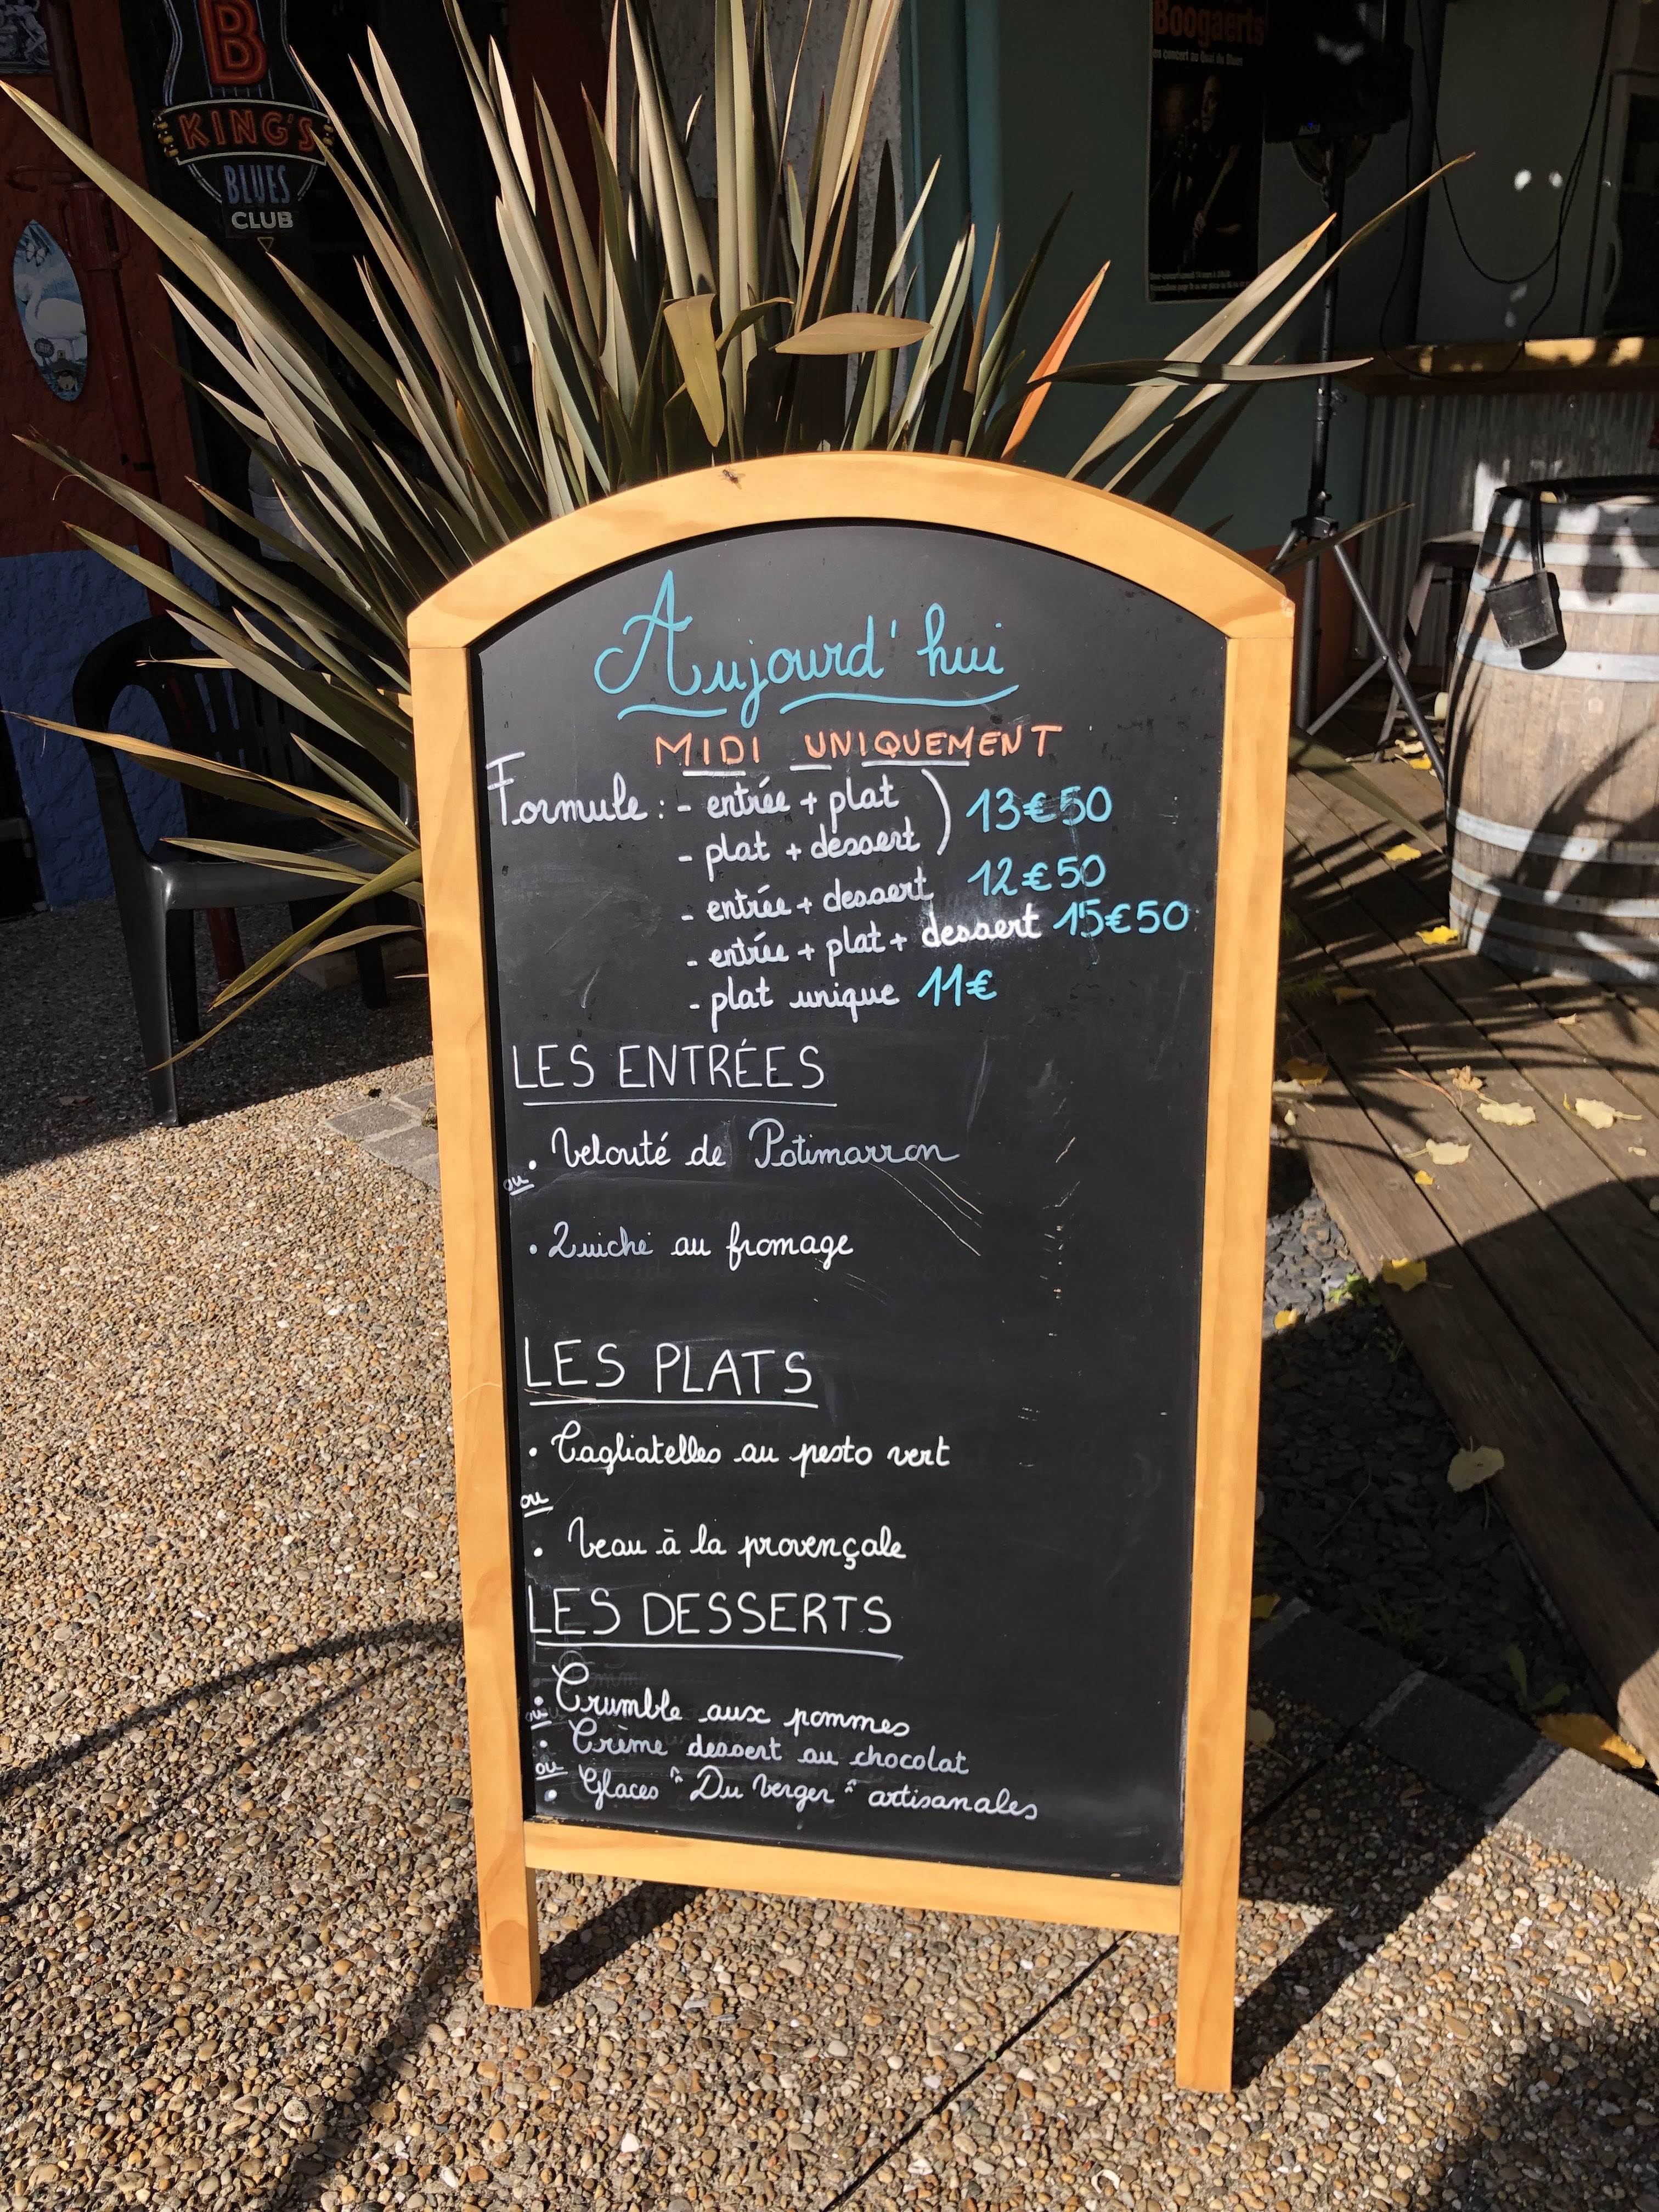 B
KING'S
BLUES
CLUB
Boogaerts
en concert au Quai du Blues
Aujourd'hui
MIDI UNIQUEMENT
Formule : - entrée + plat
- plat + dessert ) 13€50
- entrée + dessert 12€50
- entrée + plat + dessert 15€50
- plat unique 11€
LES ENTRÉES
• Velouté de Potimarron
ou
• Quiche au fromage
LES PLATS
• Tagliatelles au pesto vert
ou
• Veau à la provençale
LES DESSERTS
• Crumble aux pommes
ou
• Crème dessert au chocolat
ou
• Glaces "Du Verger" artisanales